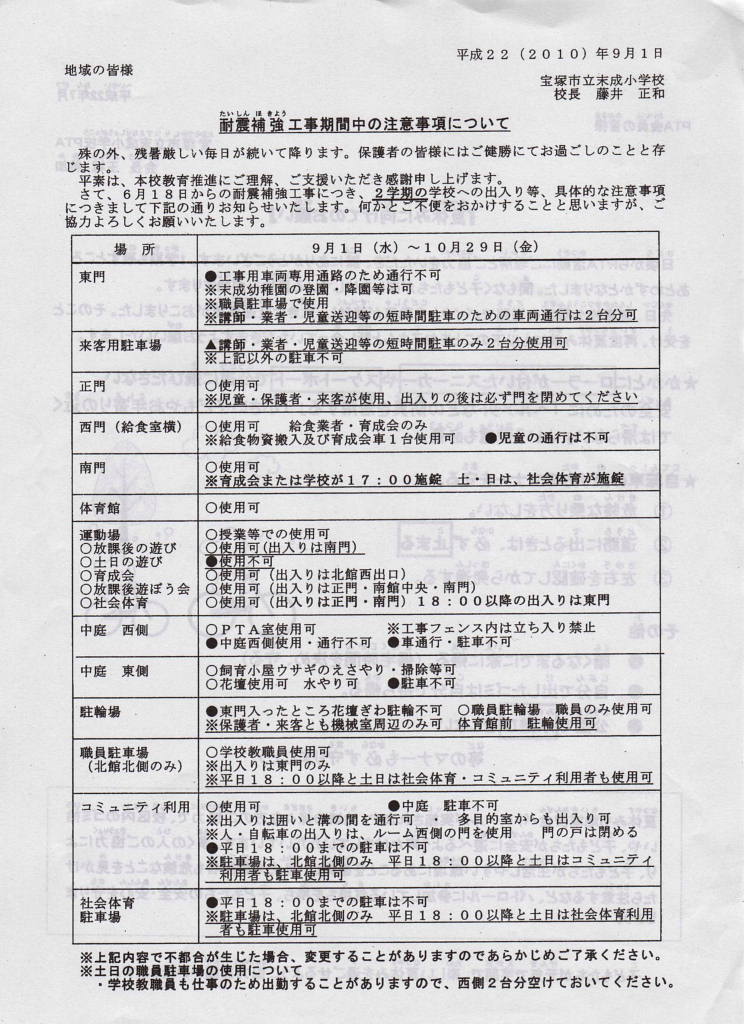 平成22（2010）年9月1日
地域の皆様
宝塚市立末成小学校
校長　藤井　正和
たいしん ほ きょう
耐震補強工事期間中の注意事項について
殊の外、残暑厳しい毎日が続いて降ります。保護者の皆様にはご健勝にてお過ごしのことと存
じます。
平素は、本校教育推進にご理解、ご支援いただき感謝申し上げます。
さて、6月18日からの耐震補強工事につき、2学期の学校への出入り等、具体的な注意事項
につきまして下記の通りお知らせいたします。何かとご不便をおかけすることと思いますが、ご
協力よろしくお願いいたします。
場　所　9月1日（水）～10月29日（金）
東門　●工事用車両専用通路のため通行不可
※末成幼稚園の登園・降園等は可
※職員駐車場で使用
※講師・業者・児童送迎等の短時間駐車のための車両通行は2台分可
来客用駐車場　▲講師・業者・児童送迎等の短時間駐車のみ2台分使用可
※上記以外の駐車不可
正門　○使用可
※児童・保護者・来客が使用、出入りの後は必ず門を閉めてください
西門（給食室横）　○使用可　給食業者・育成会のみ
※給食物資搬入及び育成会車1台使用可　●児童の通行は不可
南門　○使用可
※育成会または学校が17：00施錠　土・日は、社会体育が施錠
体育館　○使用可
運動場　○授業等での使用可
○放課後の遊び　○使用可（出入りは南門）
○土日の遊び　●使用不可
○育成会　○使用可（出入りは北館西出口）
○放課後遊ぼう会　○使用可（出入りは正門・南館中央・南門）
○社会体育　○使用可（出入りは正門・南門）18：00以降の出入りは東門
中庭　西側　○PTA室使用可　※工事フェンス内は立ち入り禁止
●中庭西側使用・通行不可　●車通行・駐車不可
中庭　東側　○飼育小屋ウサギのえさやり・掃除等可
○花壇使用可　水やり可　●駐車不可
駐輪場　●東門入ったところ花壇ぎわ駐輪不可　○職員駐輪場　職員のみ使用可
※保護者・来客とも機械室周辺のみ可　体育館前　駐輪使用可
職員駐車場　○学校教職員使用可
（北館北側のみ）　※出入りは東門のみ
※平日18：00以降と土日は社会体育・コミュニティ利用者も使用可
コミュニティ利用　○使用可　●中庭　駐車不可
※出入りは囲いと溝の間を通行可　・　多目的室からも出入り可
※人・自転車の出入りは、ルーム西側の門を使用　門の戸は閉める
●平日18：00までの駐車は不可
※駐車場は、北館北側のみ　平日18：00以降と土日はコミュニティ
利用者も駐車使用可
社会体育　●平日18：00までの駐車は不可
駐車場　※駐車場は、北館北側のみ　平日18：00以降と土日は社会体育利用
者も駐車使用可
※上記内容で不都合が生じた場合、変更することがありますのであらかじめご了承ください。
※土日の職員駐車場の使用について
・学校教職員も仕事のため出勤することがありますので、西側2台分空けておいてください。